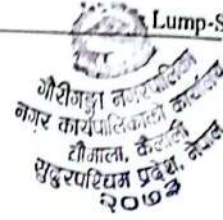 Lump-S
गौरीगङ्गा नगरपालिका
नगर कार्यपालिकाको कार्यालय
चौमाला, कैलाली
सुदूरपश्चिम प्रदेश, नेपाल
२०७३